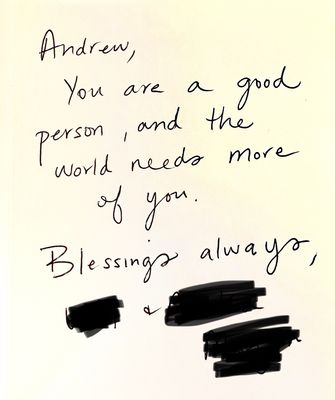 Andrew,
You are a good
person, and the
world needs more
of you.
Blessings always,
&